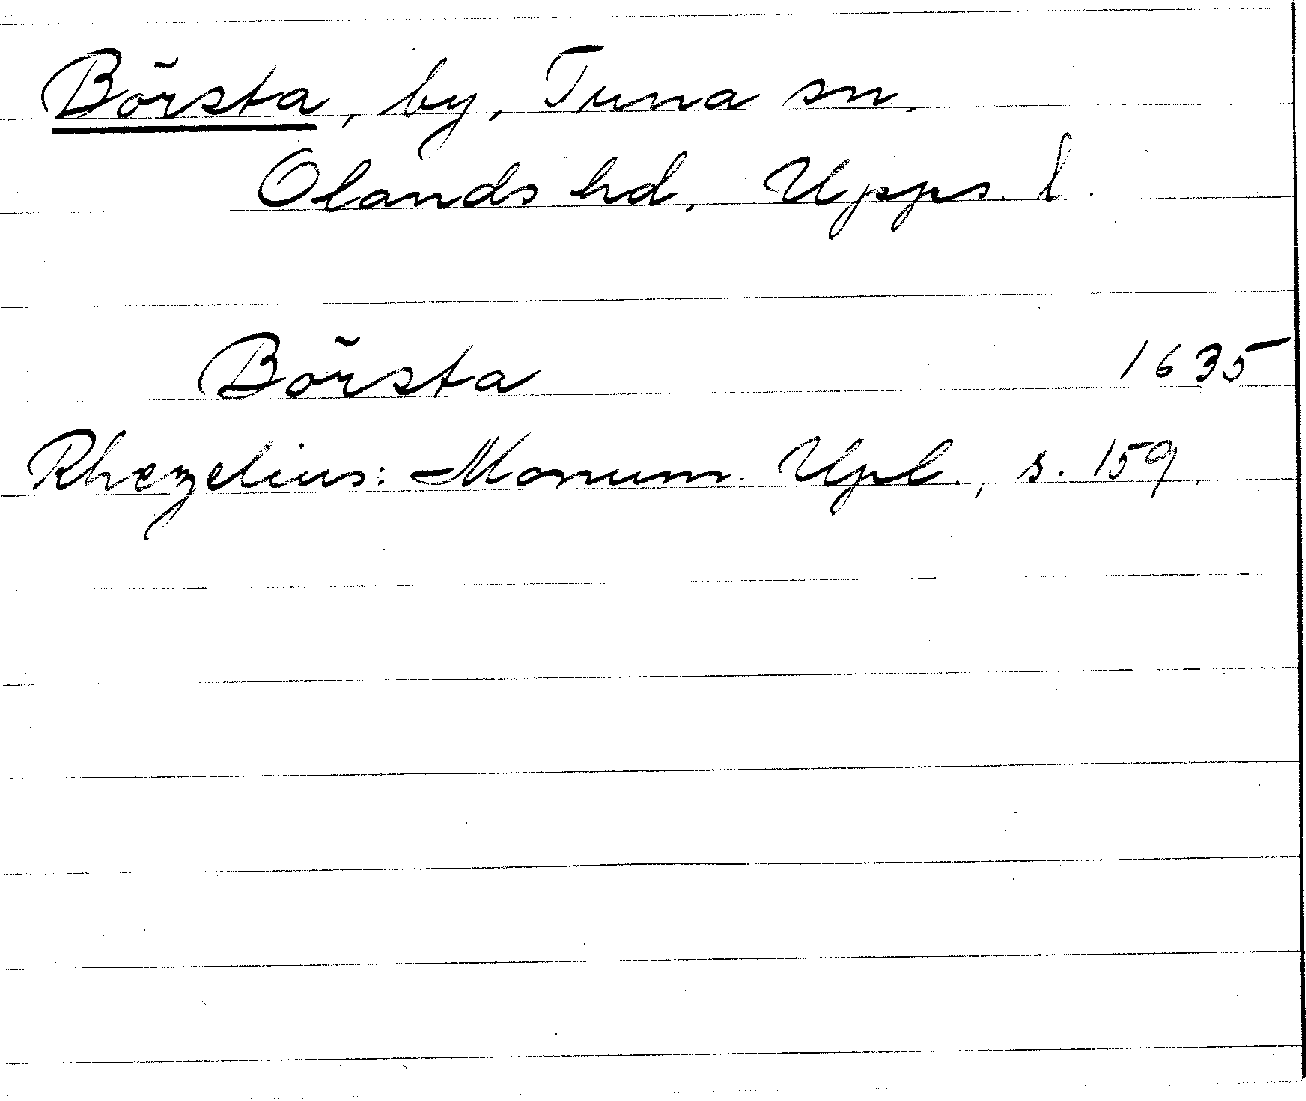 Börsta, by, Tuna sn.
Olands hd, Upps. l.
Börsta 1635
Rhezelius: Monum. Upl., s. 159.